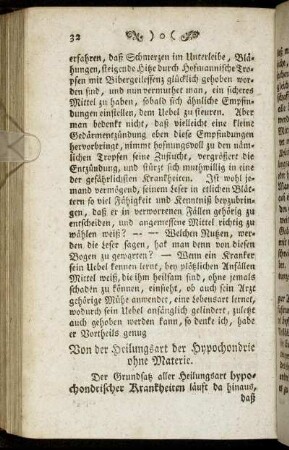 32 )o(
erfahren, daß Schmerzen im Unterleibe, Blä-
hungen, steigende Hitze durch Hofmannische Tro-
pfen mit Bibergeilessenz glücklich gehoben wor-
den sind, und nun vermuthet man, ein sicheres
Mittel zu haben, sobald sich ähnliche Empfin-
dungen einstellen, dem Uebel zu steuren. Aber
man bedenkt nicht, daß vielleicht eine kleine
Gedärmentzündung eben diese Empfindungen
hervorbringt, nimmt hofnungsvoll zu den näm-
lichen Tropfen seine Zuflucht, vergrößert die
Entzündung, und stürzt sich muthwillig in eine
der gefährlichsten Krankheiten. Ist wohl je-
mand vermögend, seinem Leser in etlichen Blät-
tern so viel Fähigkeit und Kenntniß beyzubrin-
gen, daß er in verworrenen Fällen gehörig zu
entscheiden, und angemessene Mittel richtig zu
wählen weiß? — — Welchen Nutzen, wer-
den die Leser sagen, hat man denn von diesen
Bogen zu gewarten? — Wenn ein Kranker
sein Uebel kennen lernt, bey plötzlichen Anfällen
Mittel weiß, die ihm heilsam sind, ohne jemals
schaden zu können, einsieht, ob auch sein Arzt
gehörige Mühe anwendet, eine Lebensart lernet,
wodurch sein Uebel anfänglich gelindert, zuletzt
auch gehoben werden kann, so denke ich, habe
er Vortheils genug
Von der Heilungsart der Hypochondrie
ohne Materie.
Der Grundsatz aller Heilungsart hypo-
chondrischer Krankheiten läuft da hinaus,
daß